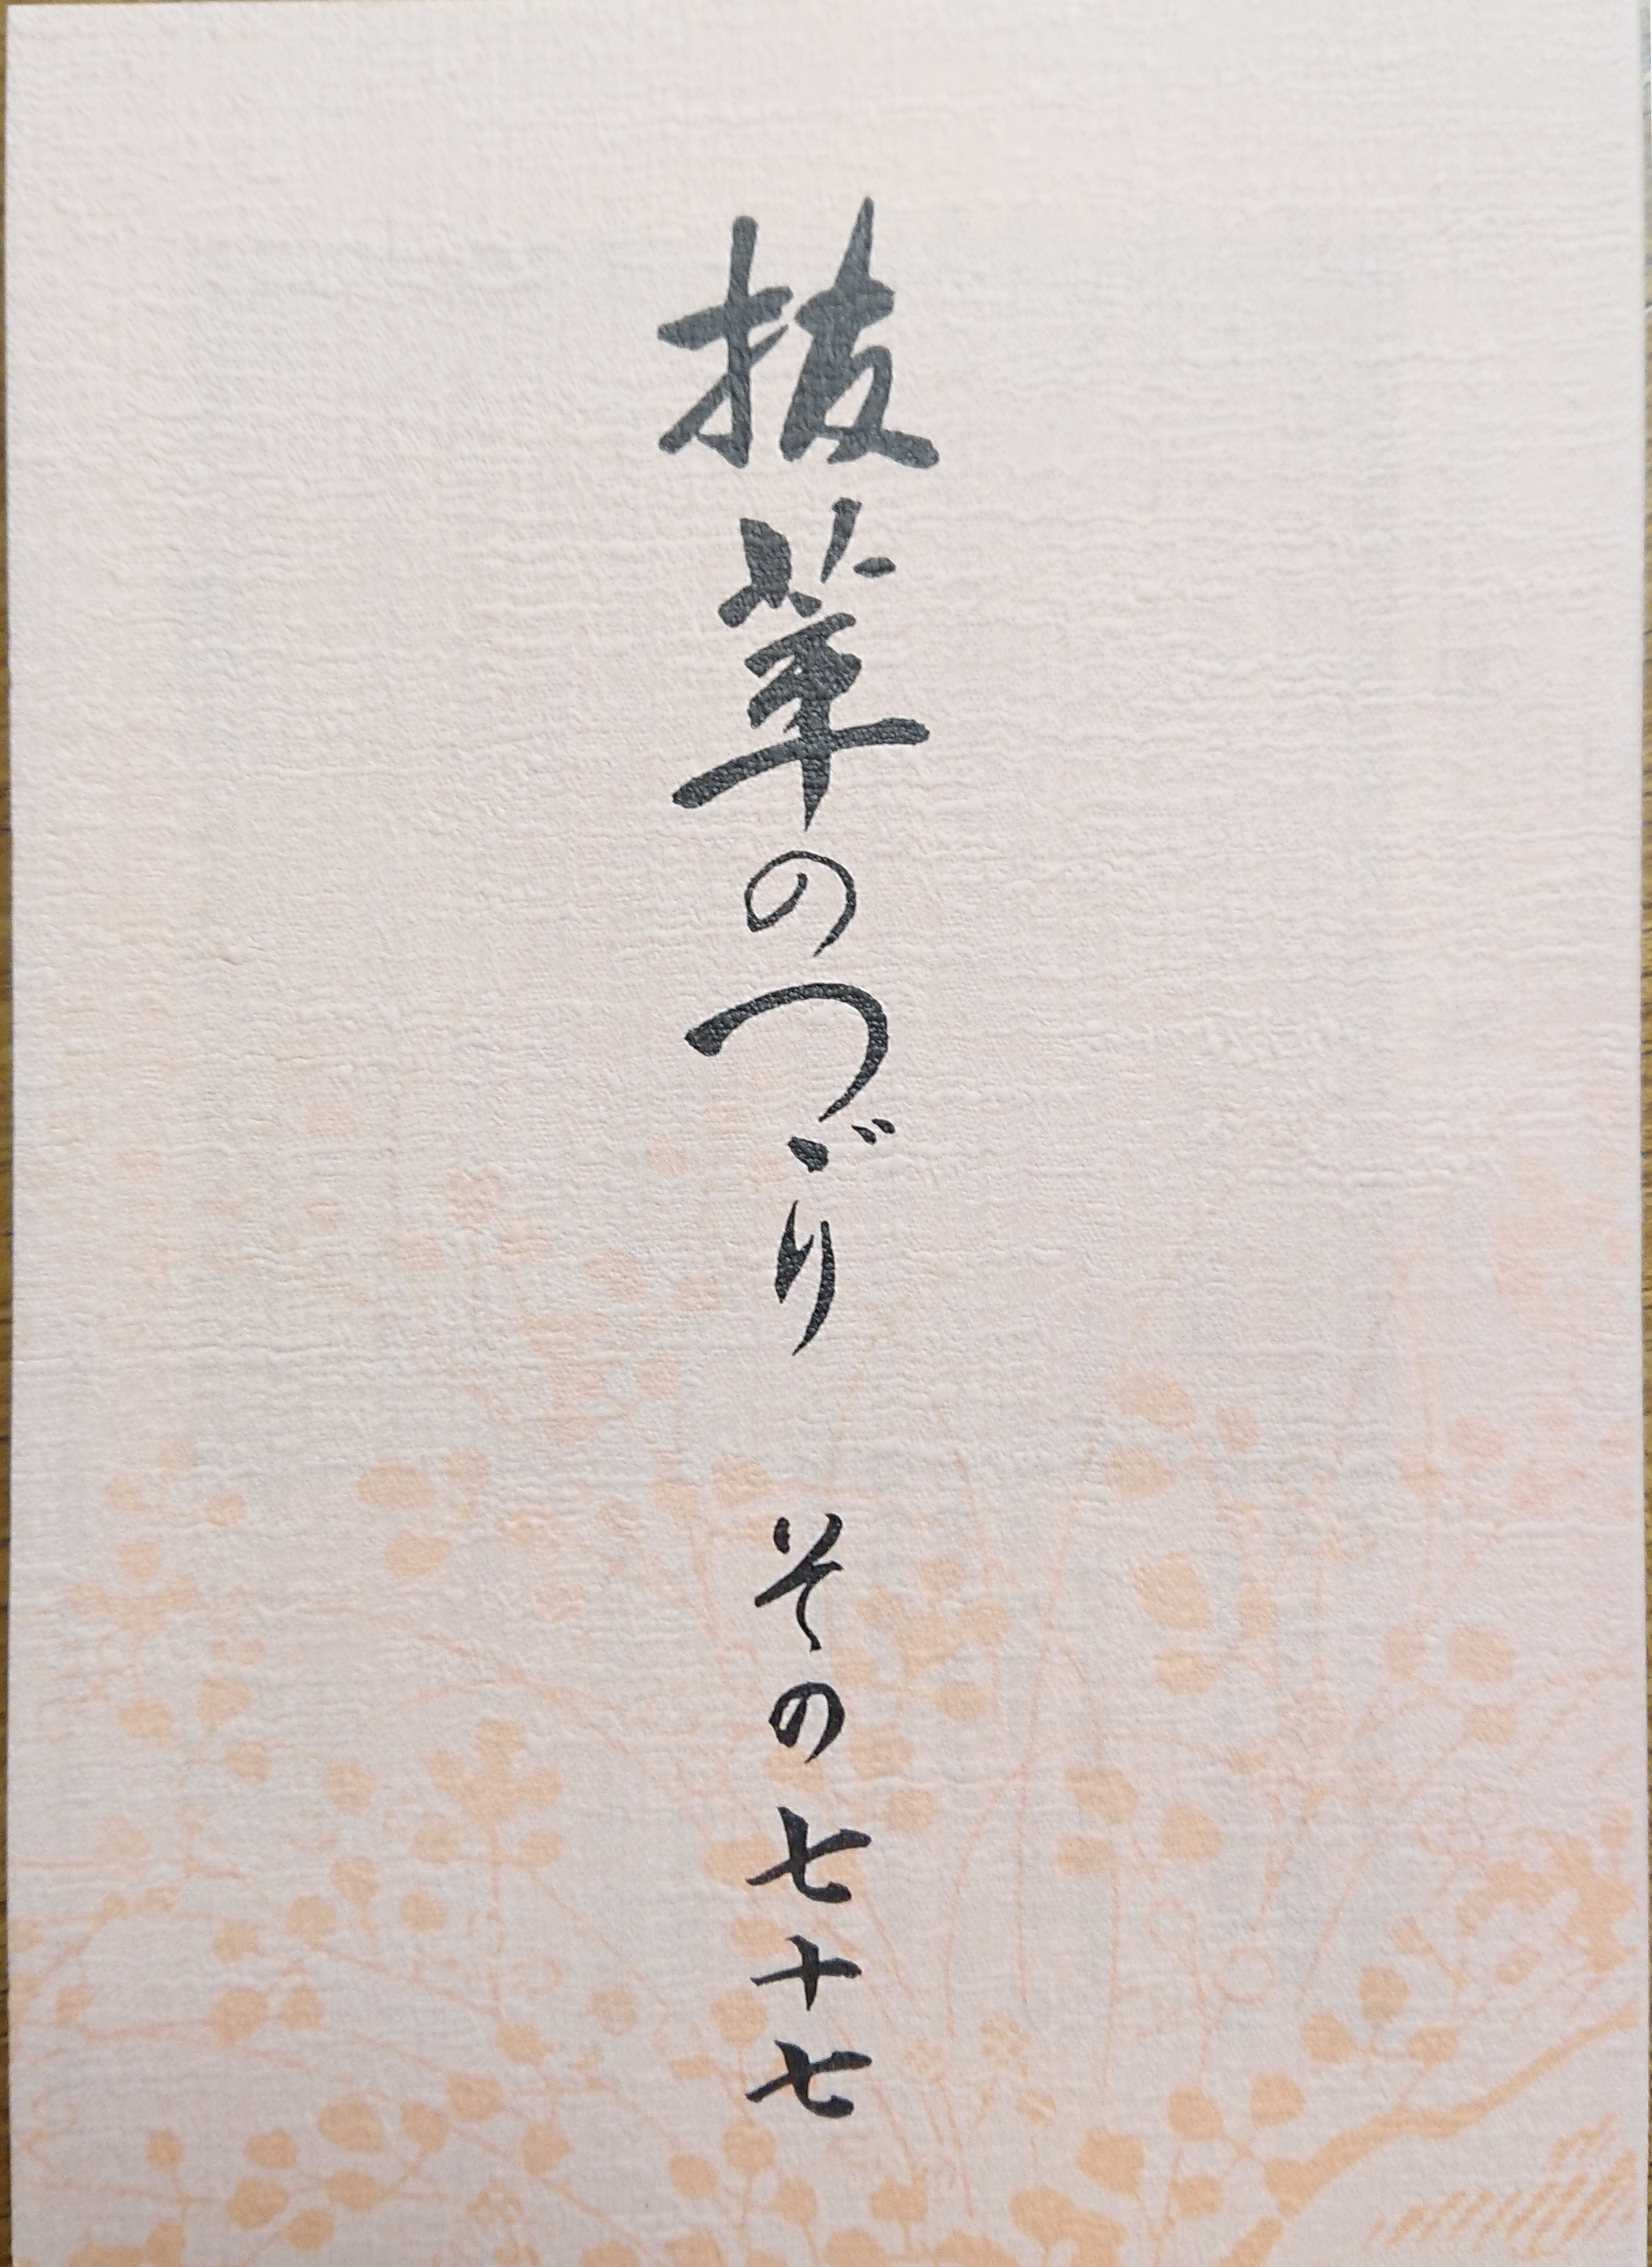 抜萃のつゞり その七十七